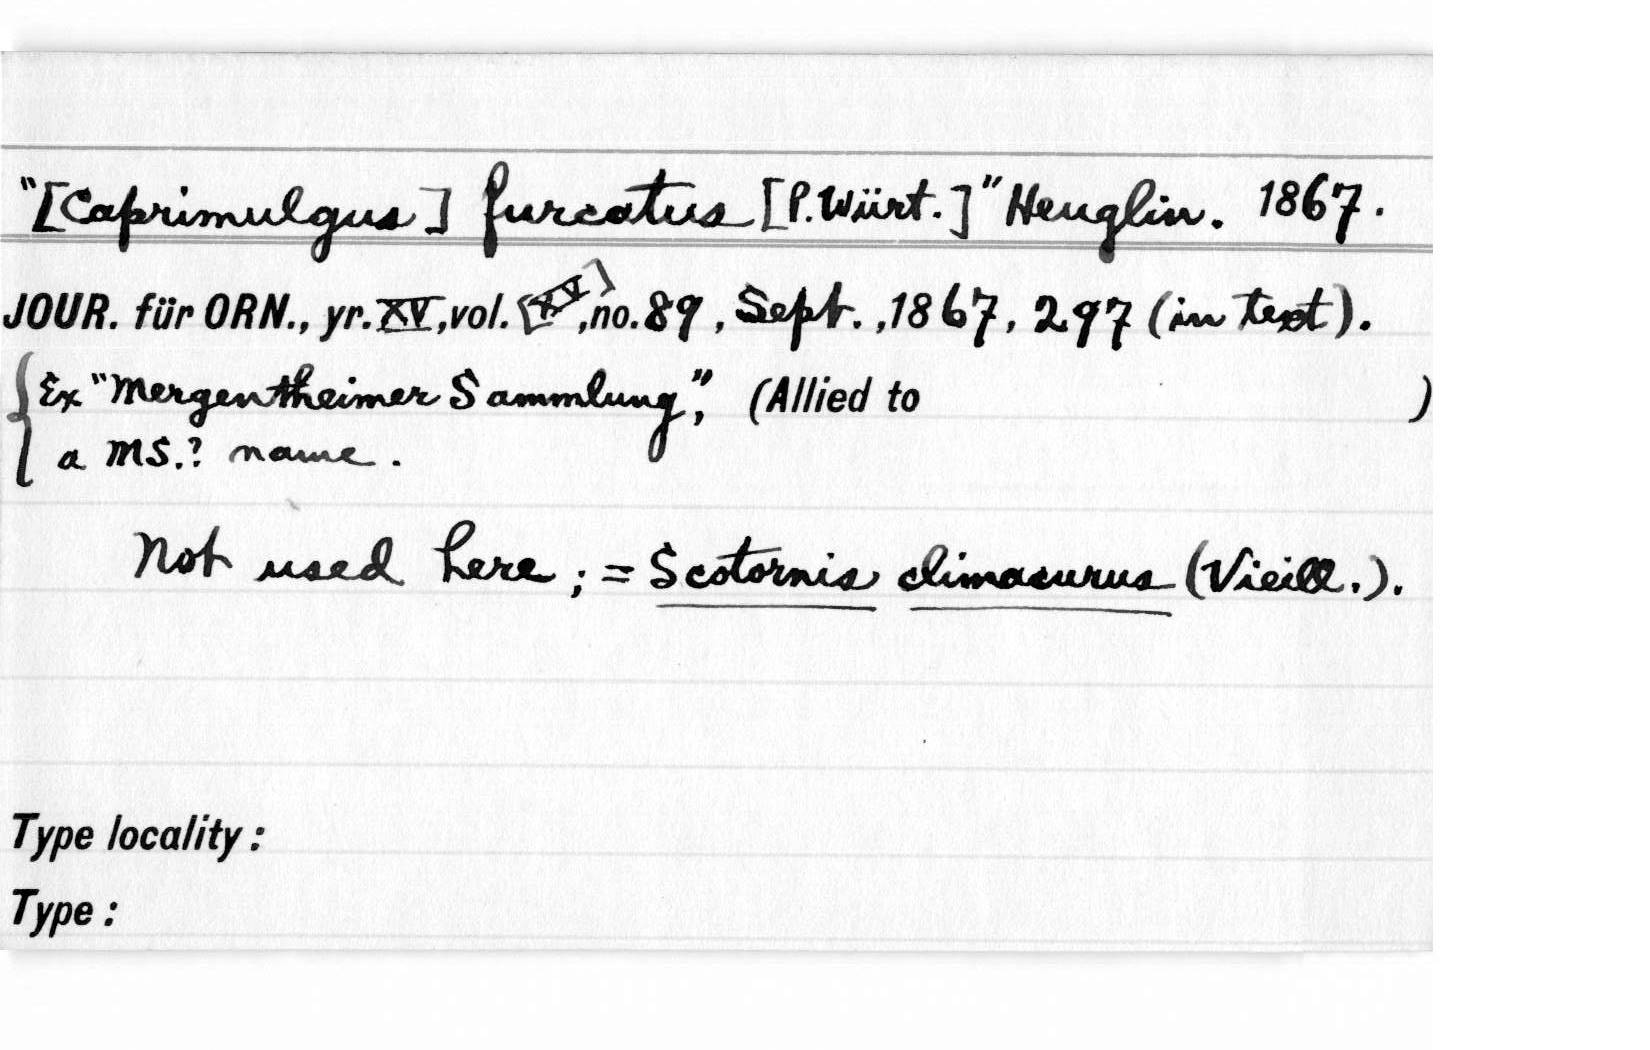 "[Caprimulgus] furcatus [P. Würt.]" Heuglin. 1867.
JOUR. für ORN., yr. XV, vol. [XV], no. 89, Sept., 1867, 297 (in text).
{Ex "Mergentheimer Sammlung", (Allied to )
a MS.? name.
Not used here; = Scotornis climacurus (Vieill.).
Type locality:
Type: